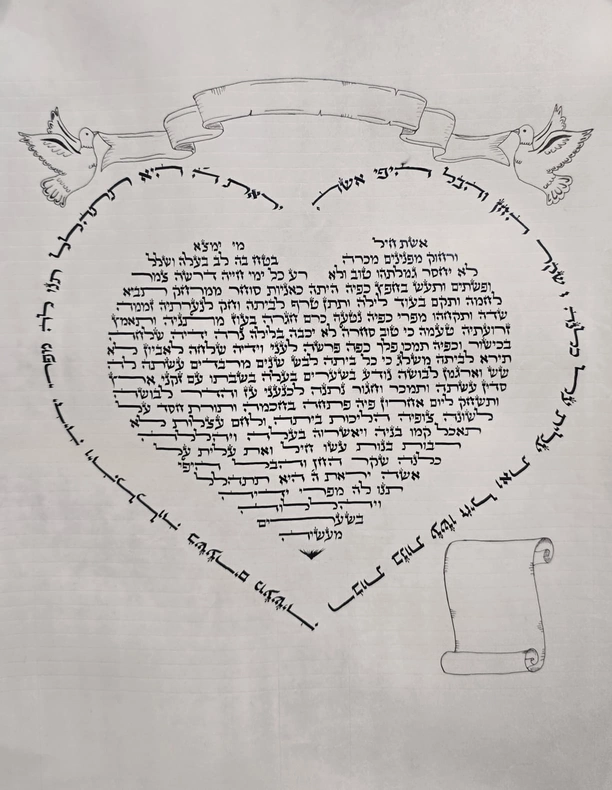 רבות בנות עשו חיל ואת עלית על כלנה שקר החן והבל היפי
יראת ה היא תתהלל תנו לה מפרי ידיה ויהללוה בשערים מעשיה
אשת חיל מי ימצא
ורחוק מפנינים מכרה בטח בה לב בעלה ושלל
לא יחסר גמלתהו טוב ולא רע כל ימי חייה דרשה צמר
ופשתים ותעש בחפץ כפיה היתה כאניות סוחר ממרחק תביא
לחמה ותקם בעוד לילה ותתן טרף לביתה וחק לנערתיה זממה
שדה ותקחהו מפרי כפיה נטעה כרם חגרה בעוז מתניה ותאמץ
זרועתיה טעמה כי טוב סחרה לא יכבה בלילה נרה ידיה שלחה
בכישור וכפיה תמכו פלך כפה פרשה לעני וידיה שלחה לאביון לא
תירא לביתה משלג כי כל ביתה לבש שנים מרבדים עשתה לה
שש וארגמן לבושה נודע בשערים בעלה בשבתו עם זקני ארץ
סדין עשתה ותמכר וחגור נתנה לכנעני עז והדר לבושה
ותשחק ליום אחרון פיה פתחה בחכמה ותורת חסד על
לשונה צופיה הליכות ביתה ולחם עצלות לא
תאכל קמו בניה ויאשרוה בעלה ויהללה
רבות בנות עשו חיל ואת עלית על
כלנה שקר החן והבל היפי
אשה יראת ה היא תתהלל
תנו לה מפרי ידיה
ויהללוה
בשערים
מעשיה